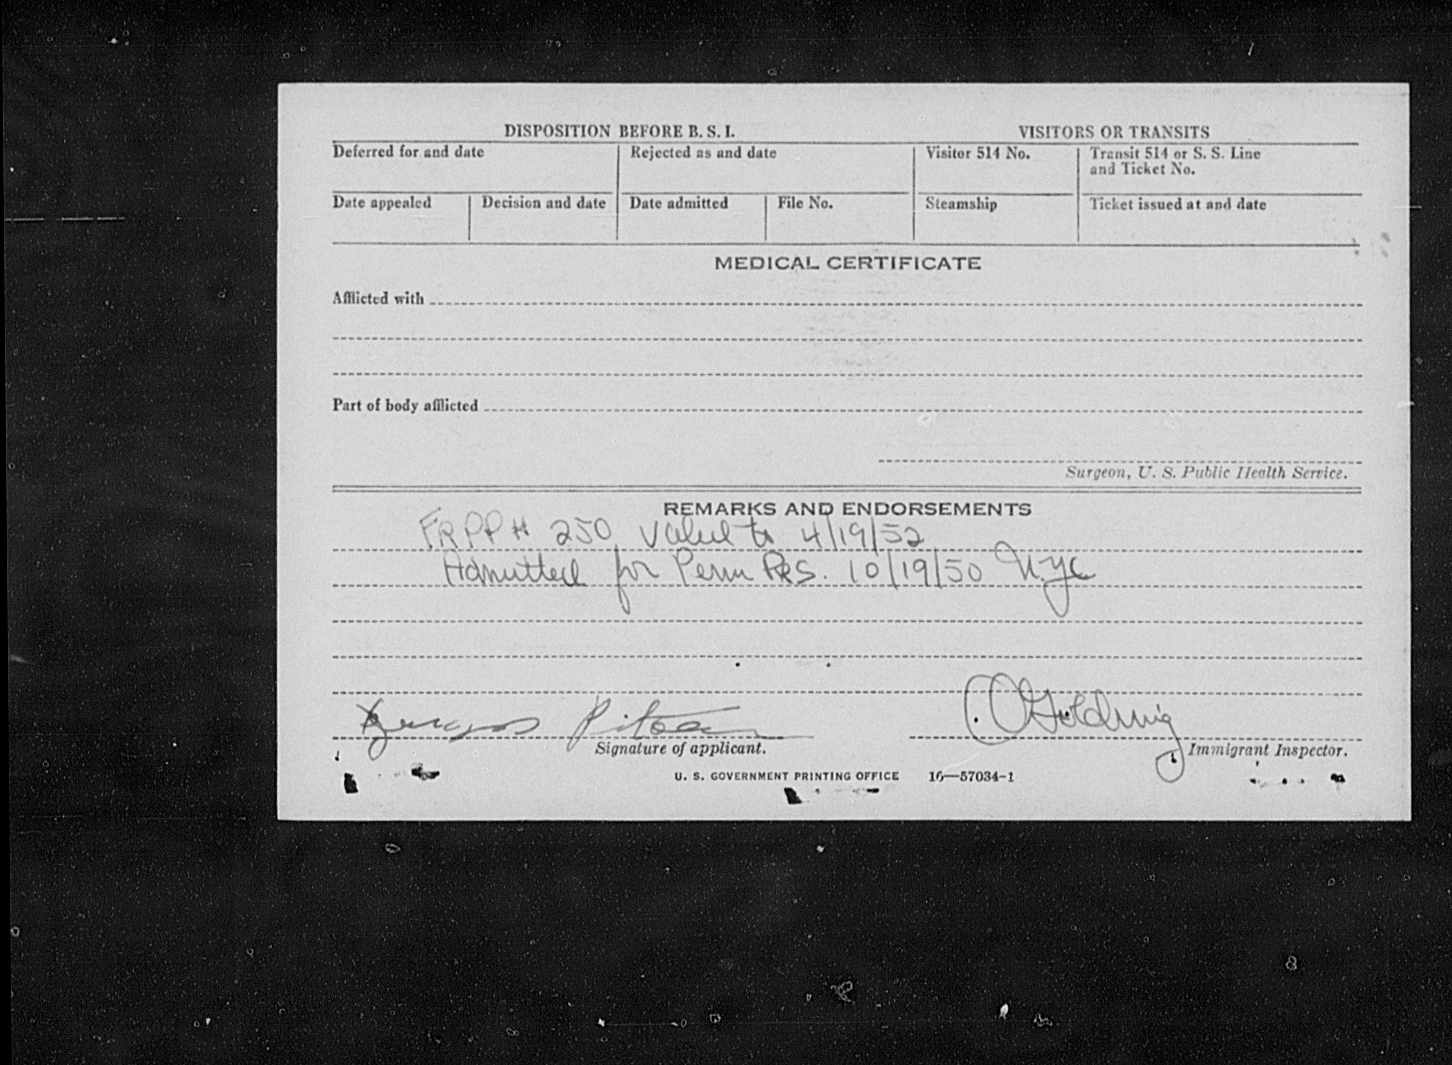 DISPOSITION BEFORE B. S. I.
VISITORS OR TRANSITS
Deferred for and date
Rejected as and date
Visitor 514 No.
Transit 514 or S. S. Line
and Ticket No.
Date appealed
Decision and date
Date admitted
File No.
Steamship
Ticket issued at and date
MEDICAL CERTIFICATE
Afflicted with
Part of body afflicted
Surgeon, U. S. Public Health Service.
REMARKS AND ENDORSEMENTS
FR PP # 250 Valid to 4/19/52
Admitted for Perm Res. 10/19/50 NYC
Signature of applicant.
Immigrant Inspector.
U. S. GOVERNMENT PRINTING OFFICE 16—57034-1